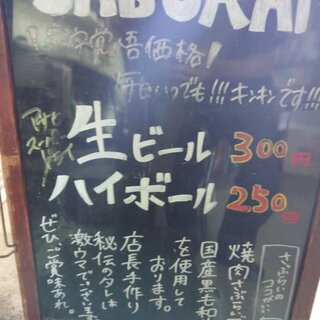 !赤字覚悟価格!
毎日いつでも!!!キンキンです!!!
アサヒ
スーパー
ドライ
生ビール 300円
ハイボール 250円
さぶらいの
ココがいい
焼肉さぶらいで
国産黒毛和
を使用して
おります。
店長手作り
秘伝のタレは
激ウマでございます
ぜひご賞味あれ。